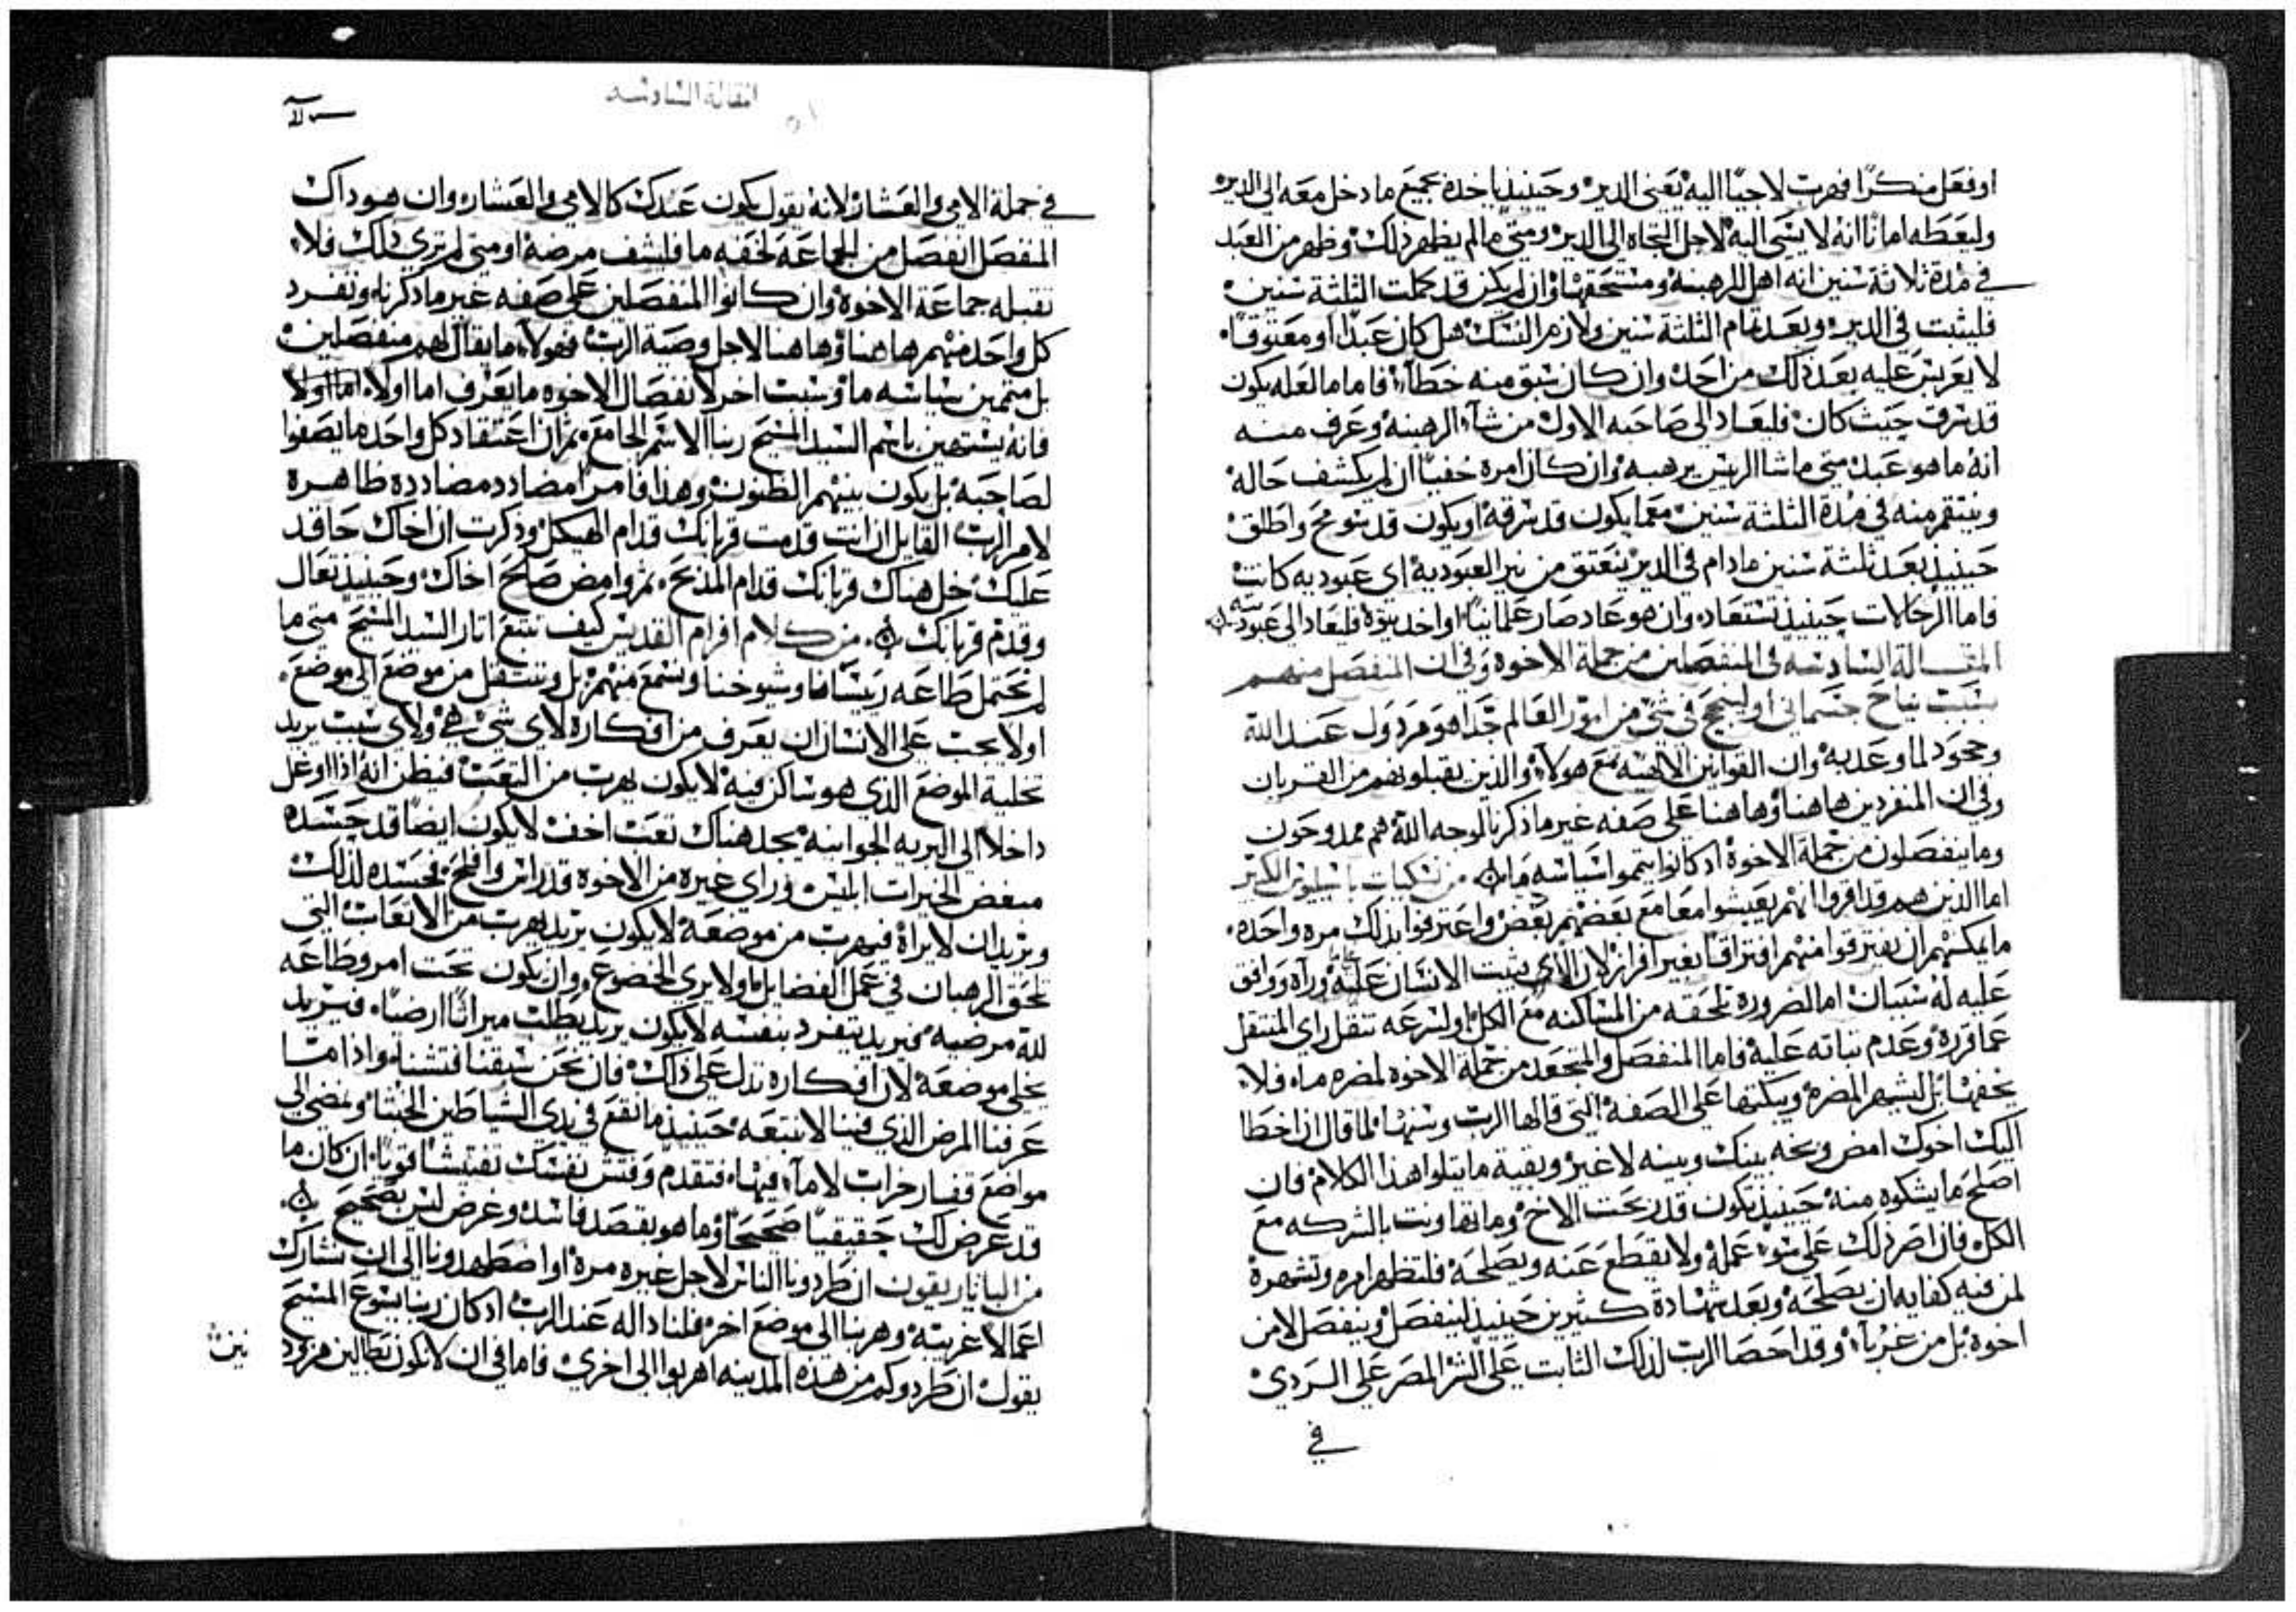 او فعل منكرًا فهرب لاجيًا اليه يعني الدير وحينيذ ياخده بجميع ما دخل معه الى الدير
وليعطه امانًا انه لا يسي اليه لاجل التجاه الى الدير ومتى ما لم يظهر ذلك وظهر من العبد
في مدة ثلاثة سنين انه اهل للرهبنه ومستحقها وان لم يكن قد كملت الثلثة سنين
فليثبت في الدير وبعد تمام الثلثة سنين ولازم النسك هل كان عبدًا او معتوقًا
لا يعربس عليه بعد ذلك من احد وان كان سبق منه خطاء فاما ما لعله يكون
قد سرق حيث كان فليعاد الى صاحبه الاول من شاء الرهبنه وعرف منه
انه ما هو عبد متى ما شا الريس يرهبه وان كان امره خفيًا ان لم يكشف حاله
وينتقم منه في مدة الثلثة سنين معما يكون قد سرقه او يكون قد تنومح واطلق
حينيذ بعد ثلثة سنين ما دام في الدير يتعتق من نير العبودية اي عبوديه كانت
فاما الرحالات حينيذ تستعاد وان هو عاد صار علمانيًا او اخد بتوه فليعاد الى عبوديته
المقالة السادسه في المنفصلين من جملة الاخوة وفي ان المنفصل منهم
بسبب نياح جسماني او لسمج في شي من امور العالم جدا هو مردول عند الله
وجحود لما وعد به وان القوانين الالهيه تمنع هولاء والذين يقبلونهم من القربان
وفي ان المنفردين هاهنا وهاهنا على صفه غير ما ذكرنا لوجه الله هم ممدوحون
وما ينفصلون من جملة الاخوة اد كانوا يتموا سياسه ما من نسكيات باسيليوس الكبير
اما الذين هم قد اقروا انهم يعيشوا معا مع بعضهم بعض واعترفوا بذلك مره واحده
ما يمكنهم ان يفترقوا منهم افتراقًا بغير افراز لان الذي يثبت الانسان عليه ورآه ووافق
عليه له سببان اما الضروره تلحقه من المساكنه مع الكل او لسرعه تنقل راي المنتقل
عما قرره وعدم ثباته عليه فاما المنفصل والمبتعد من جملة الاخوه لمضره ما فلا
يخفيها بل ليشهر المضره ويبكتها على الصفة التي قالها الرب وسنها لما قال ان اخطا
اليك اخوك امض وبخه بينك وبينه لا غير وبقية ما يتلوا هذا الكلام فان
اصلح ما يشكوه منه حينيذ يكون قد ربحت الاخ وما تهاونت بالشركه مع
الكل فان اصر ذلك على سوء عمله ولا يقطع عنه ويصلحه فلتظهر امره وتشهره
لمن فيه كفايه ان يصلحه وبعد شهادة كثيرين حينيذ لينفصل وينفصل لا من
اخوه بل من غرباء وقد احصا الرب لذلك الثابت على الشر المصر على الردي
في
المقالة السادسه
في جملة الامي والعشار لانه يقول يكون عندك كالامي والعشار وان هو داك
المنفصل انفصل من الجماعة لحقه ما فليشف مرضه او متى لم تري ذلك فلا
تقبله جماعة الاخوة وان كانوا المنفصلين على صفه غير ما ذكرناه وتفرد
كل واحد منهم هاهنا وهاهنا لاجل وصية الرب فهولاء ما يقال لهم منفصلين
بل متممين سياسه ما وسبب اخر لانفصال الاخوه ما يعرف اما اولا
فانه يستهين باسم السيد المسيح ربنا الاسم الجامع ثم ان اعتقاد كل واحد ما يصفوا
لصاحبه بل يكون بينهم الظنون وهذا فامرًا مضادد مضادده ظاهرة
لامر الرب القايل ان انت قدمت قربانك قدام الهيكل وذكرت ان اخاك حاقد
عليك خل هناك قربانك قدام المذبح ثم وامض صالح اخاك وحينيذ تعال
وقدم قربانك من كلام افرام القديس كيف نتبع اثار السيد المسيح متى ما
لم نحتمل طاعه ريسانا وشيوخنا ونسمع منهم بل وننتقل من موضع الى موضع
اولا يجب على الانسان ان يعرف من افكاره لاي شي هي ولاي سبب يريد
تخلية الموضع الذي هو ساكن فيه لا يكون يهرب من التعب فيظن انه اذا اوغل
داخلا الى البريه الجوانيه يجد هناك تعب اخف لا يكون ايضًا قد حسده
مبغض الخيرات ابليس وراي غيره من الاخوه قد راس وافلح فحسده لذلك
ويريد ان لا يراه فيهرب من موضعه لا يكون يريد يهرب من الاتعاب التي
تلحق الرهبان في عمل الفضايل ولا يري الخضوع وان يكون تحت امر وطاعه
لله مرضيه فيريد يتفرد بنفسه لا يكون يريد يطلب ميراثًا ارضيًا فيريد
يخلى موضعه لان افكاره تدل على ذلك فان نحن سبقنا فتشنا واذا متا
عرفنا المرض الذي فينا لا نتبعه حينيذ ما نقع في يدي الشياطين الخبثاء ونمضي الى
مواضع قفار خراب لا ماء فيها فتقدم وفتش نفسك تفتيشًا قويًا ان كان ما
قد عرض لك حقيقيًا صحيحًا وما هو بقصد فاسد وغرض ليس بصحيح
من البانار يقون ان طردونا الناس لاجل غيره مرة او اضطهدونا الى ان نشارك
اعمالًا غريبة وهربنا الى موضع اخر فلنا داله عند الرب اد كان ربنا يسوع المسيح
يقول ان طردوكم من هذه المدينه اهربوا الى اخري فاما في ان لا نكون بطالين